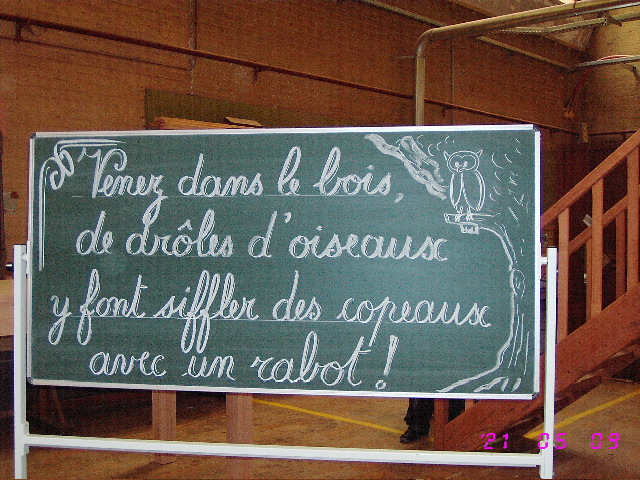 Venez dans le bois,
de drôles d'oiseaux
y font siffler des copeaux
avec un rabot !
'21 05 09